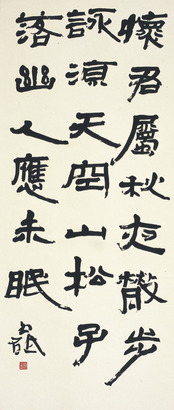 懷君屬秋夜散步
詠涼天空山松子
落幽人應未眠